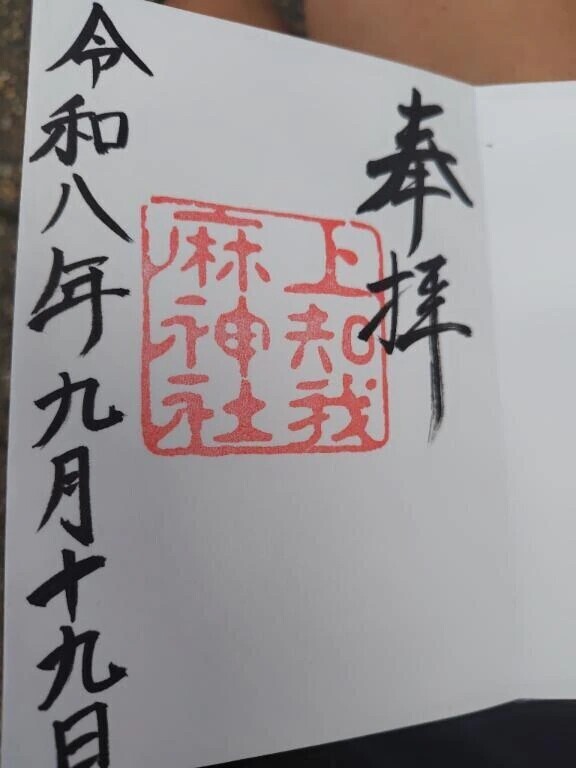 奉拝
上知我
麻神社
令和八年九月十九日